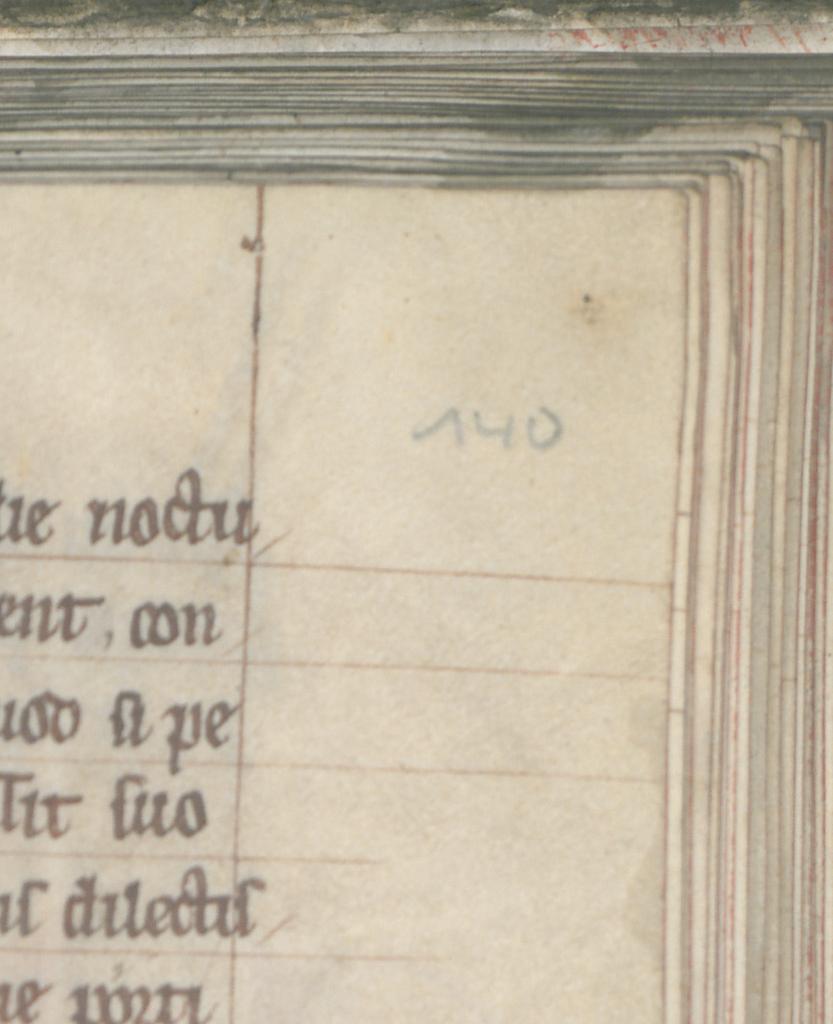 140
tie noctu
ent, con
uod si pe
sit suo
us dilectis
ue porti